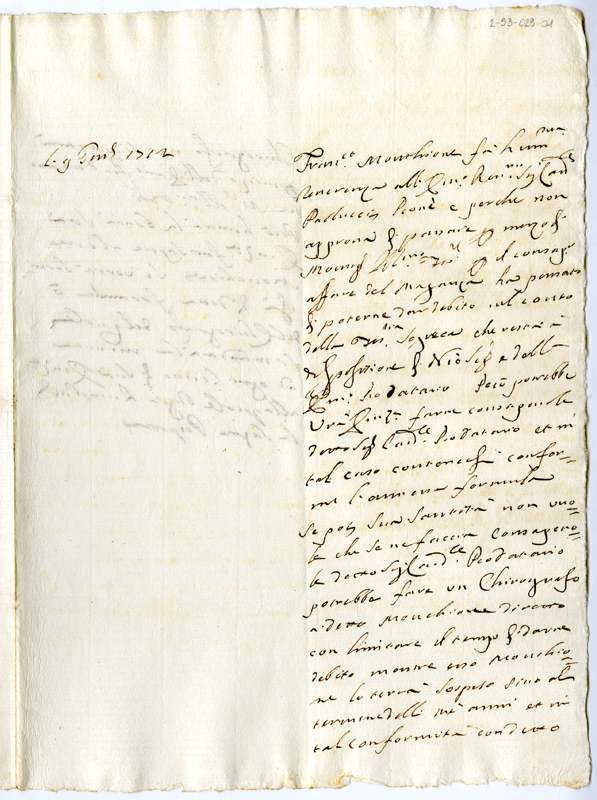 2-53-029-01
li 9 Genº 1712
Franco Monchione fà hum.ma
reverenza all' Em.o Rev.mo Sig. Card.le
Paolucci Prone e perche non
approva di passare p mezo di
Mons.
affare del Maganza ha pensato
di poterne dar debito nel conto
della segreca che resta à
disposizione di Nro Sig.e e dello
Em.o ProDatario Però potrebbe
Vra Emza farne consapevole
detto Sig. Card.le ProDatario et in
tal caso contenersi confor-
me l'annessa formula
Se poi Sua Santità non vuo-
le che se ne faccia consapevo-
le detto Sig. Card.le ProDatario
potrebbe fare un Chirografo
à detto Monchione diretto
con limitare il tempo di darne
debito mentre esso Monchio-
ne lo terrà sospeso sino al
termine delli trè anni et in
tal conformità con detto